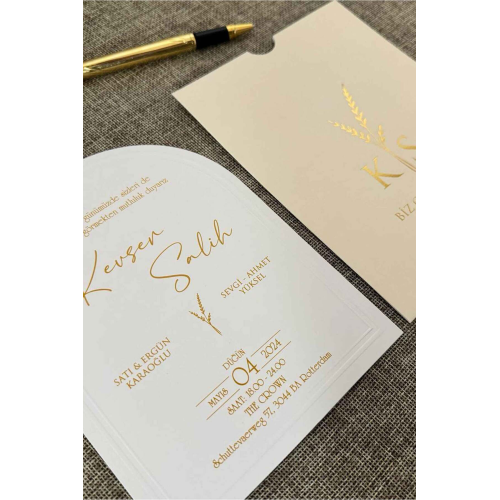 günümüzde sizleri de
görmekten mutluluk duyarız
Kevser
Salih
SATI & ERGÜN
KARAOĞLU
SEVGİ - AHMET
YÜKSEL
DÜĞÜN
MAYIS 04 2024
SAAT: 18.00 - 24.00
THE CROWN
Schuttevaerweg 57, 3044 BA Rotterdam
K S